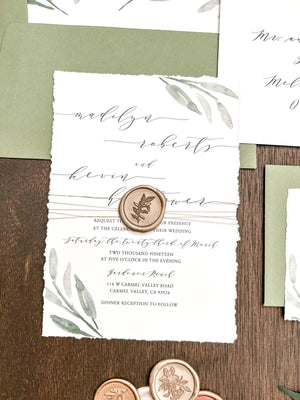 madelyn
roberts
and
kevin
REQUEST THE PRESENCE
AT THE CELEBRATION THEIR WEDDING
Saturday, the twenty third of March
TWO THOUSAND NINETEEN
AT FIVE O'CLOCK IN THE EVENING
Gardener Ranch
114 W CARMEL VALLEY ROAD
CARMEL VALLEY, CA 93924
DINNER RECEPTION TO FOLLOW
Mr. an